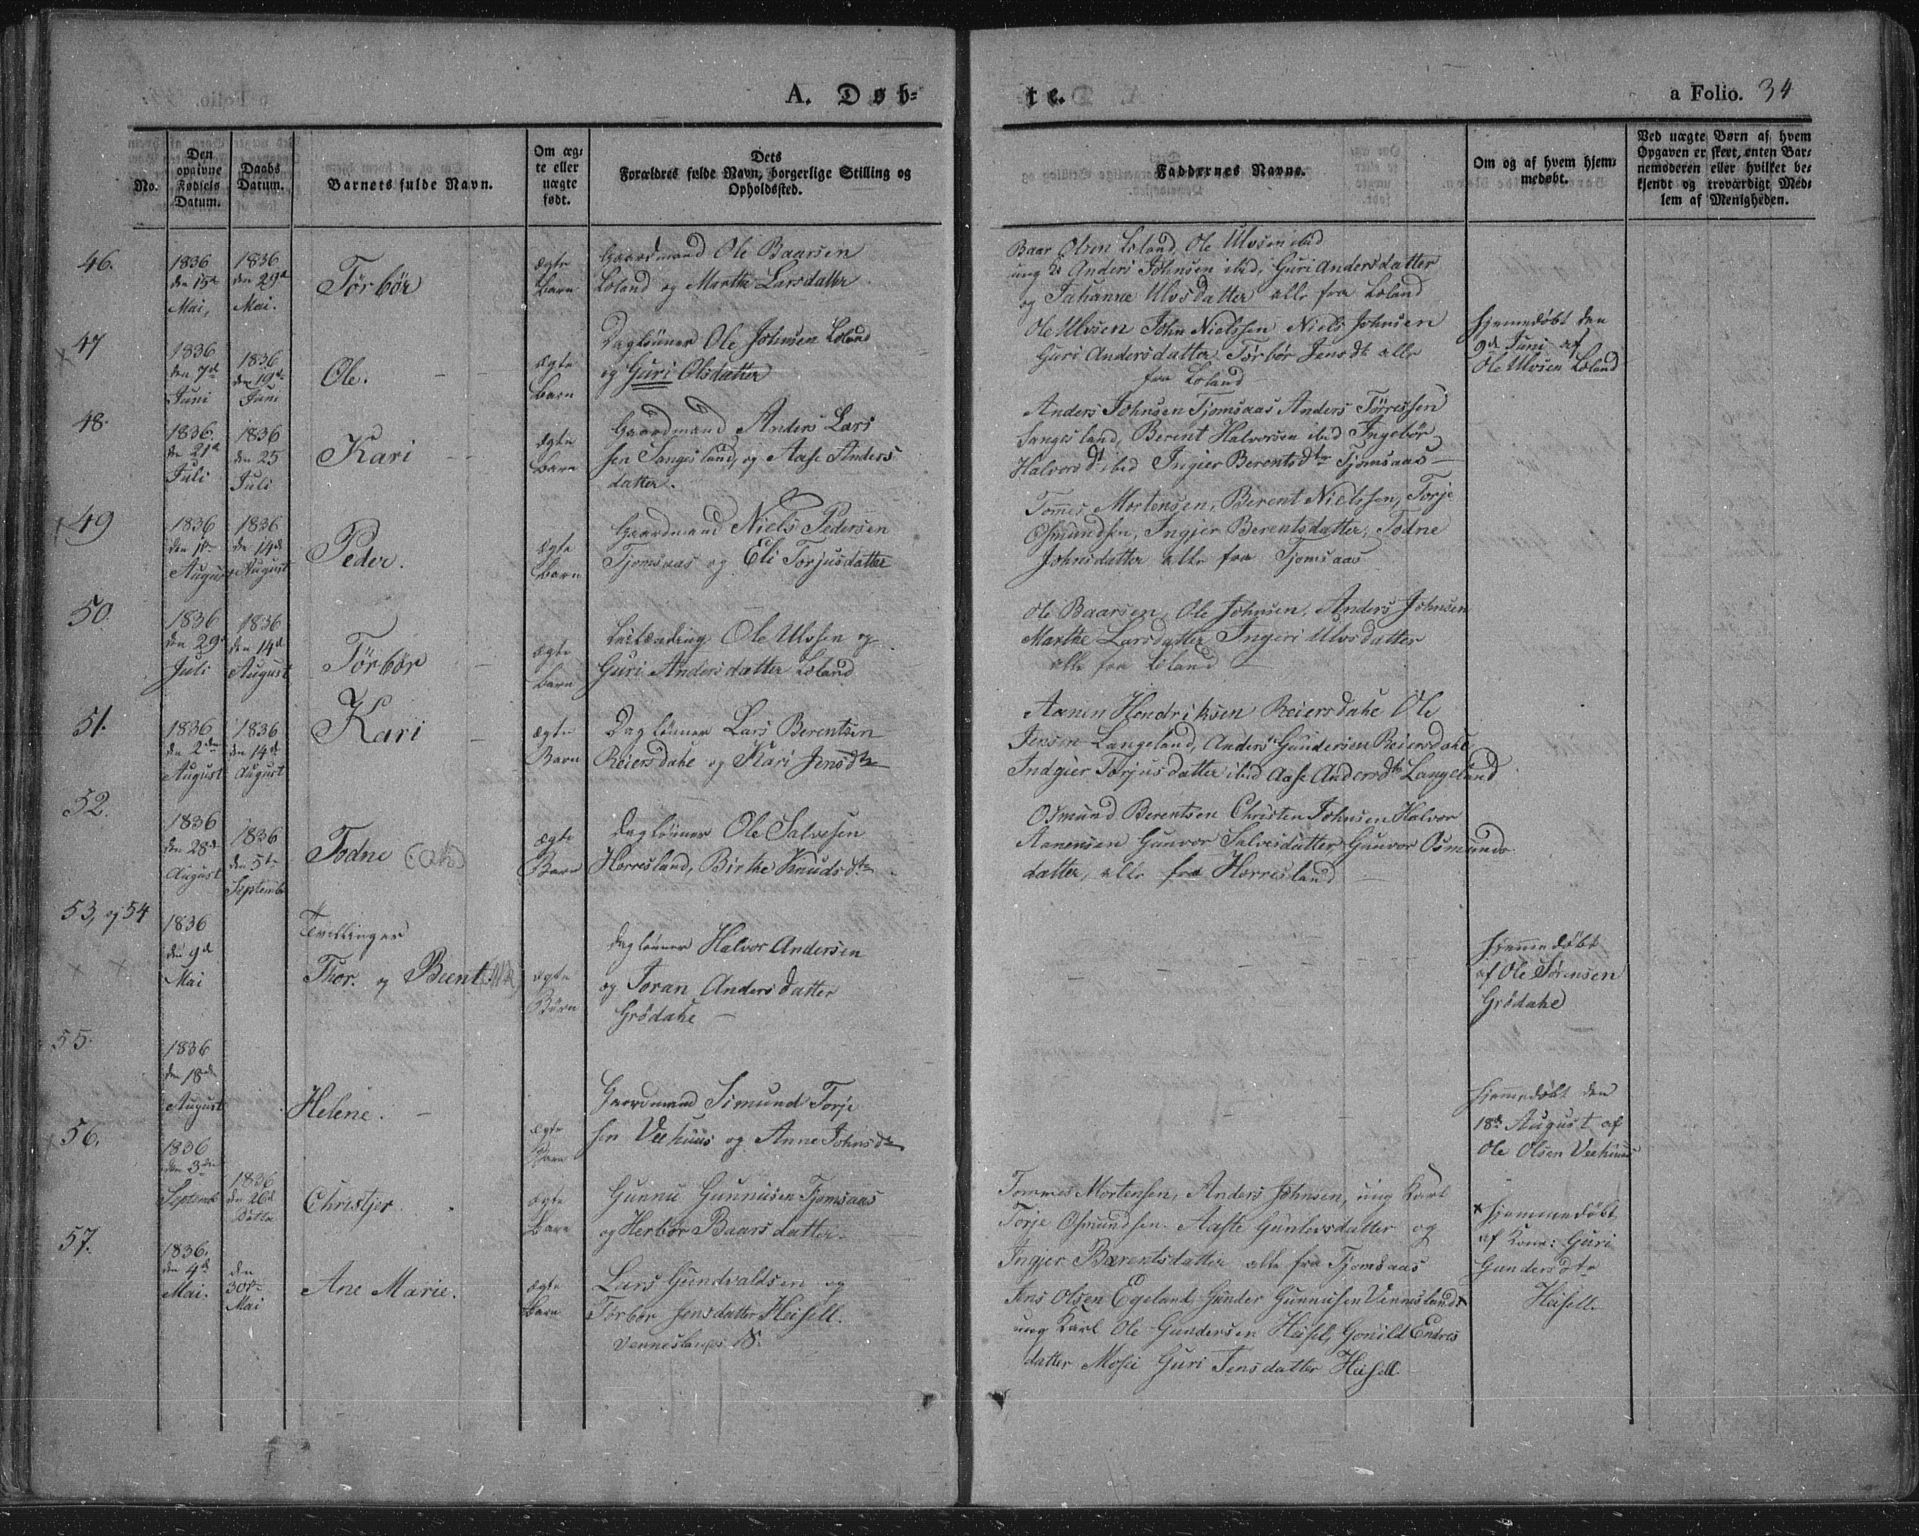 A. Døb-
te.
a Folio. 34
No.
Den opgivne Fødsels Datum.
Daabs Datum.
Barnets fulde Navn.
Om ægte eller uægte født.
Dets
Forældres fulde Navn, borgerlige Stilling og
Opholdssted.
Faddernes Navne.
Om og af hvem hjemmedøbt.
Ved uægte Børn af hvem
Opgaven er skeet, enten Bar-
nemoderen eller hvilket be-
kjendt og troværdigt Med-
lem af Menigheden.
46.
1836
den 15d
Mai,
1836
den 29d
Mai.
Törbör
ægte
Barn
Gaardmand Ole Baarsen
Loland og Marthe Larsdatter
Baar Olsen Loland, Ole Ulvsen ibid
ung K Anders Johnsen ibid, Guri Andersdatter
og Johanne Ulvsdatter alle fra Loland
47
1836
den 7d
Juni
1836
den 19d
Juni
Ole.
ægte
Barn
Daglönner Ole Johnsen Loland
og Guri Olsdatter
Ole Ulvsen John Nielssen Niels Johnsen
Guri Andersdatter Törbör Jensdt alle
fra Loland
Hjemmedøbt den
9d Juni af
Ole Ulvsen Loland
48.
1836
den 21d
Juli
1836
den 25
Juli
Kari
ægte
Barn
Gaardmand Anders Lars
sen Sangesland, og Aase Anders
datter.
Anders Johnsen Tjomsaas Anders Törressen
Sangesland, Berent Halvorsen ibid Ingebör
Halvorsdt ibid Ingier Berentsdtr Tjomsaas
49
1836
den 1ste
August
1836
den 14d
August
Peder.
ægte
Barn
Gaardmand Niels Pedersen
Tjomsaas og Eli Torjusdatter
Tommes Mortensen, Berent Nielssen, Torje
Osmundsen, Ingjer Berentsdatter, Todne
Johnsdatter alle fra Tjomsaas
50.
1836
den 29
Juli
1836
den 14d
August
Törbör
ægte
Barn
Ole Ulvsen og
Guri Andersdatter Loland
Ole Baarsen, Ole Johnsen, Anders Johnsen
Marthe Larsdatter Ingeri Ulvsdatter
alle fra Loland
51.
1836
den 2den
August
1836
den 14d
August
Kari
ægte
Barn
Daglönner Lars Berentsen
Reiersdahe og Kari Jensdtr
Aanen Hendriksen Reiersdahe Ole
Jensen Langeland, Anders Gundersen Reiersdahe
Indgier Torjusdatter ibid Aase Andersdtr Langeland
52.
1836
den 28d
August
1836
den 5te
Septembr
Todne
ægte
Barn
Daglönner Ole Salvesen
Horresland, Birthe Knudsdtr
Osmund Berentsen Christen Johnsen Halvor
Aanensen Gunvor Salvesdatter Gunvor Osmunds
datter, alle fra Horresland
53, og 54
1836
den 9d
Mai
Tvillinger
Thor. og Beent
ægte
Börn
Daglönner Halvor Andersen
og Joran Andersdatter
Grödahe
Hjemmedøbt
af Ole Sörensen
Grödahe
55.
1836
den 18d
August
Helene.
ægte
Barn
Gaardmand Simund Torje
sen Veehuus og Anne Johnsdtr
Hjemmedøbt den
18de August af
Ole Olsen Veehuus
56.
1836
den 3die
Septemb
1836
den 26d
Christjer.
ægte
Barn
Gunnu Gunnusen Tjomsaas
og Herbör Baarsdatter
Tommes Mortensen, Anders Johnsen, ung Karl
Torje Osmundsen. Aaste Guntersdatter og
Ingjer Berentsdatter alle fra Tjomsaas
57.
1836.
den 4d
Mai.
den
30te
Mai
Ane Marie.
ægte
Barn
Lars Gundvaldsen og
Torbor Jensdatter Heisell.
Venneslands S.
Jens Olsen Egeland Gunder Gunnusen Vennesland
ung Karl Ole Gundersen Heisel, Gonild Endres
datter Mosei Guri Jensdatter Heisell
× Hjemmedøbt
af Kone: Guri
Gundersdtr
Heisell.